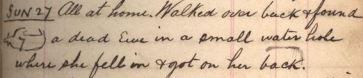 SUN 27 All at home. Walked over back & found
a dead Ewe in a small water hole
where she fell in & got on her back.